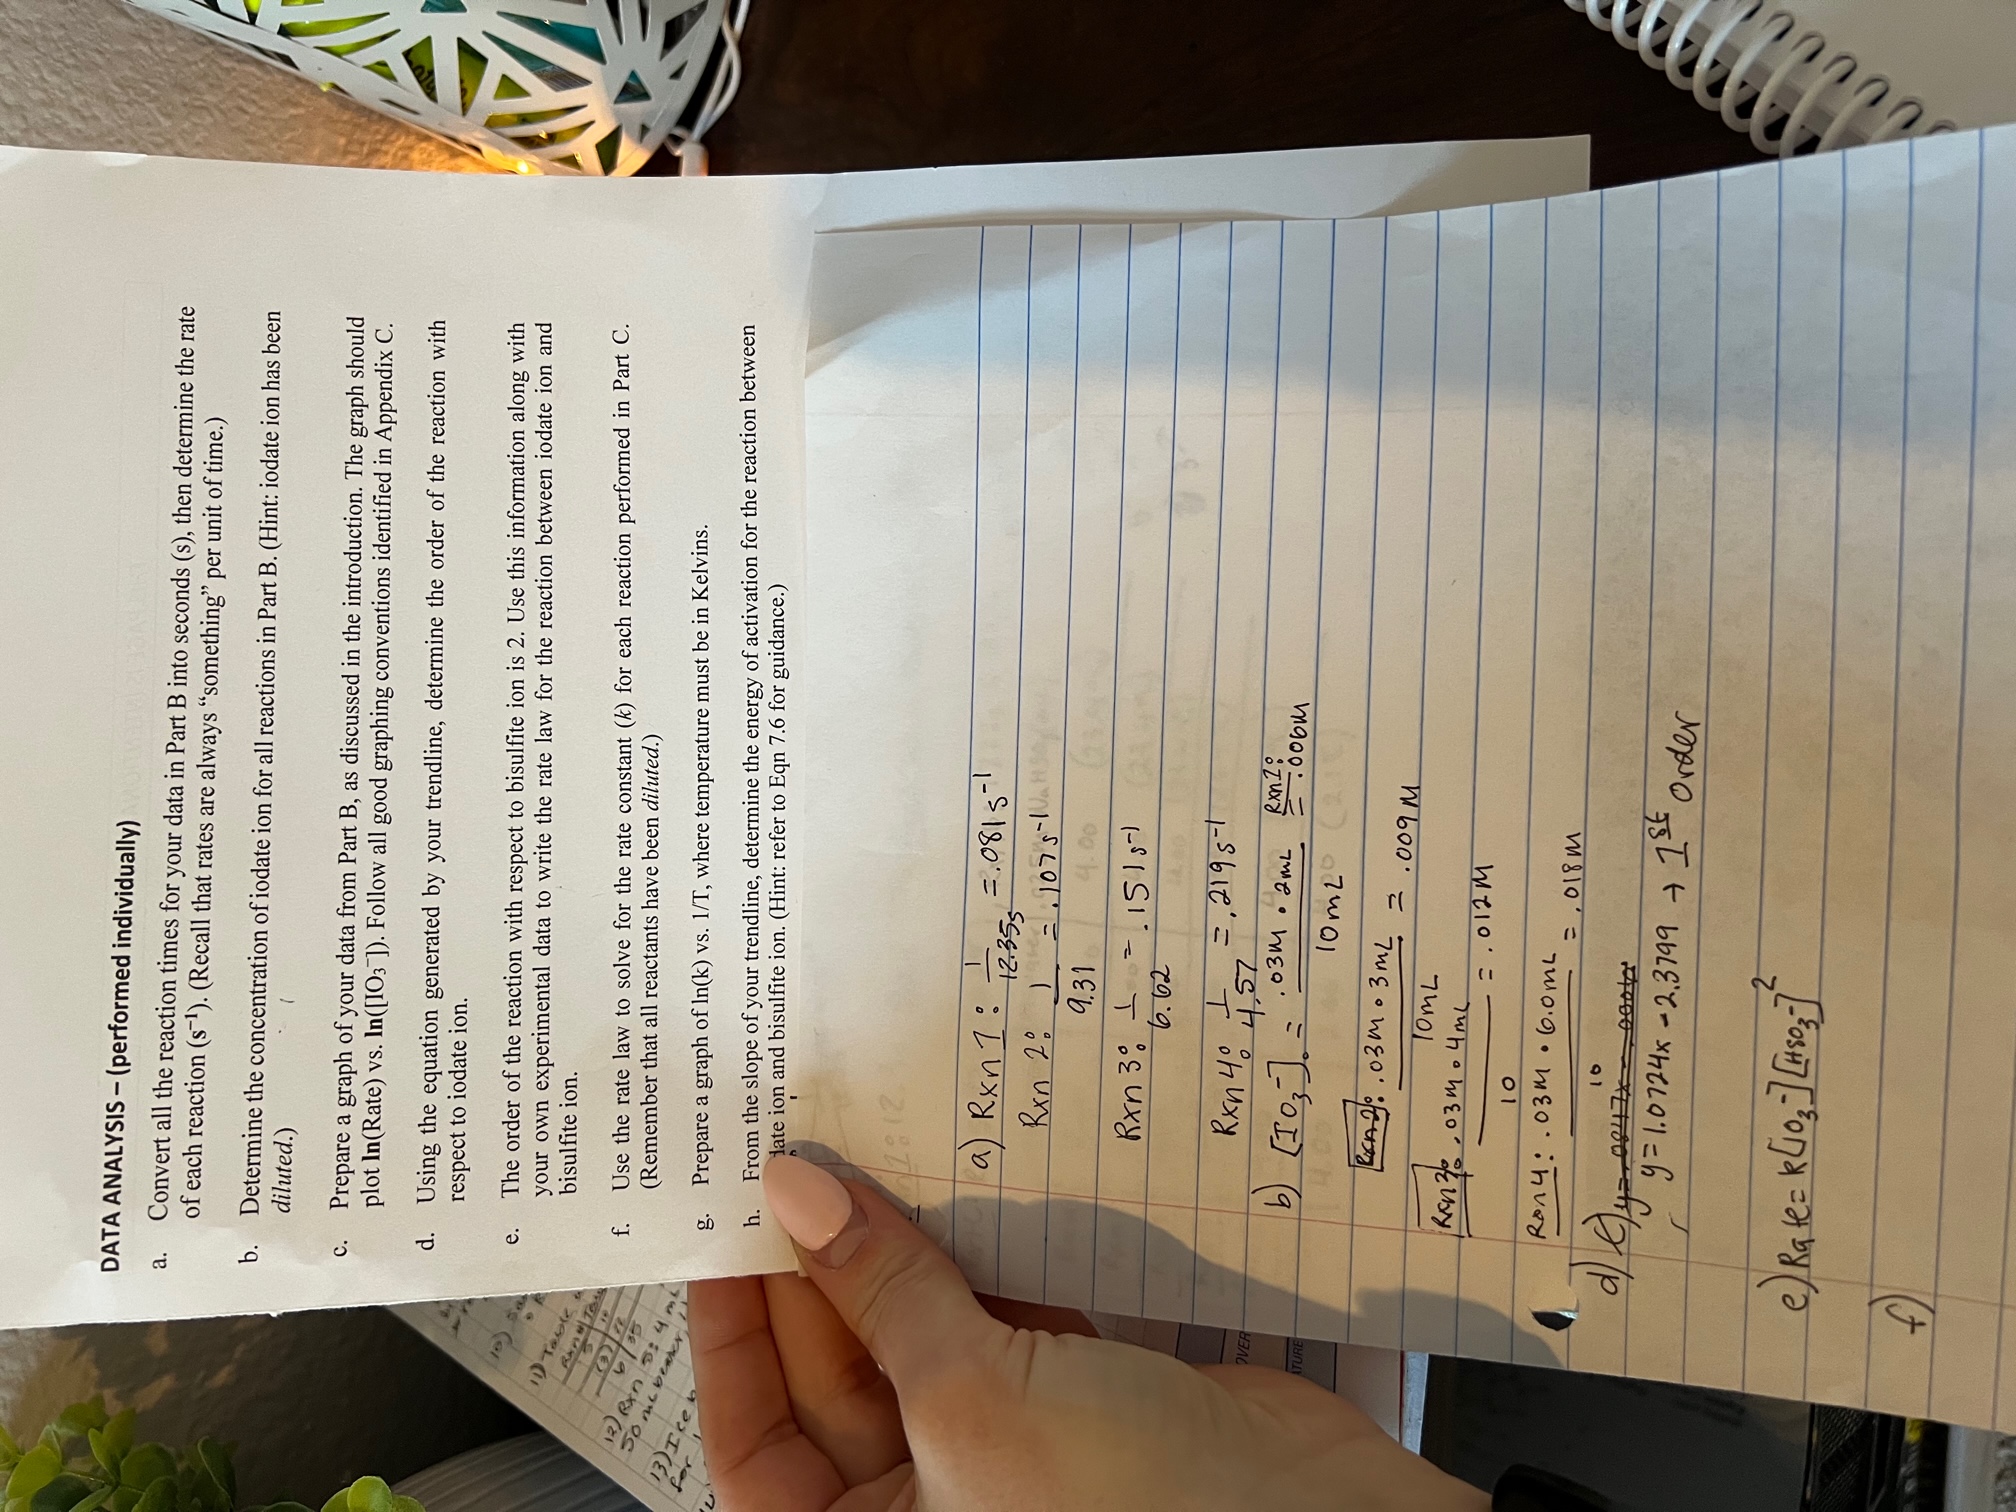 DATA ANALYSIS – (performed individually)
a. Convert all the reaction times for your data in Part B into seconds (s), then determine the rate
of each reaction (s⁻¹). (Recall that rates are always “something” per unit of time.)
b. Determine the concentration of iodate ion for all reactions in Part B. (Hint: iodate ion has been
diluted.)
c. Prepare a graph of your data from Part B, as discussed in the introduction. The graph should
plot ln(Rate) vs. ln([IO₃⁻]). Follow all good graphing conventions identified in Appendix C.
d. Using the equation generated by your trendline, determine the order of the reaction with
respect to iodate ion.
e. The order of the reaction with respect to bisulfite ion is 2. Use this information along with
your own experimental data to write the rate law for the reaction between iodate ion and
bisulfite ion.
f. Use the rate law to solve for the rate constant (k) for each reaction performed in Part C.
(Remember that all reactants have been diluted.)
g. Prepare a graph of ln(k) vs. 1/T, where temperature must be in Kelvins.
h. From the slope of your trendline, determine the energy of activation for the reaction between
date ion and bisulfite ion. (Hint: refer to Eqn 7.6 for guidance.)
a) Rxn 1: 1/12.35s = .081 s⁻¹
Rxn 2: 1/9.31 = .107 s⁻¹
Rxn 3: 1/6.62 = .151 s⁻¹
Rxn 4: 1/4.57 = .219 s⁻¹
b) [IO₃⁻]₀ = .03M · 2mL / 10mL Rxn 1: = .006M
Rxn 2: .03M · 3mL / 10mL = .009 M
Rxn 3: .03M · 4mL / 10 = .012M
Rxn 4: .03M · 6.0mL / 10 = .018M
d)
y = 1.0724x - 2.3799 → 1st Order
e) Rate = k[IO₃⁻][HSO₃⁻]²
f)
10)
11) Table
Rxn #
12) Rxn 5: 4 mL
50 mL beaker
13) Ice
for
OVER
TURE